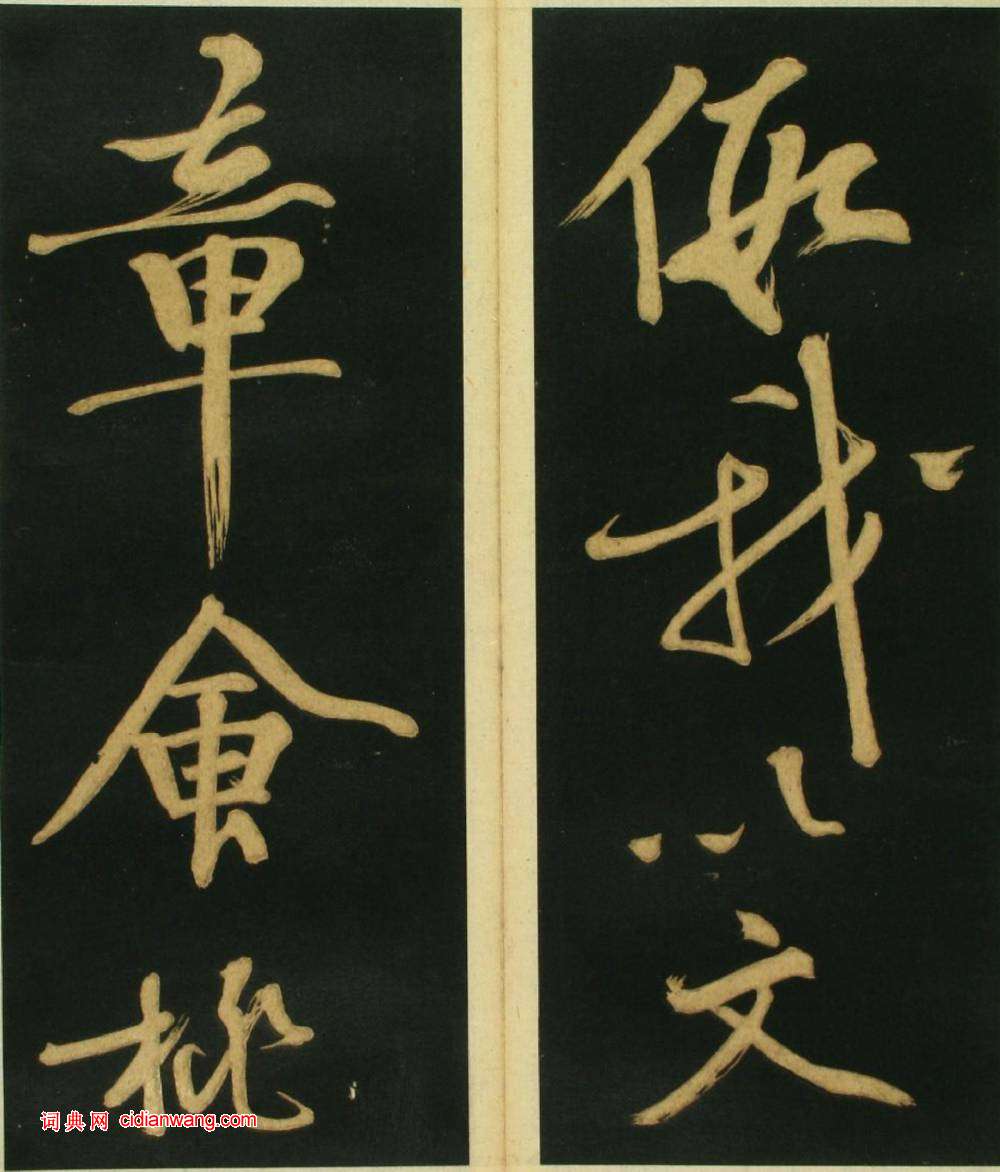 假我以文
章會桃
词典网 cidianwang.com